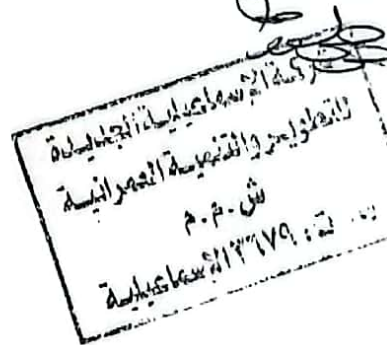 شركة الإسماعيلية الجديدة
للتطوير والتنمية العمرانية
ش.م.م
الإسماعيلية